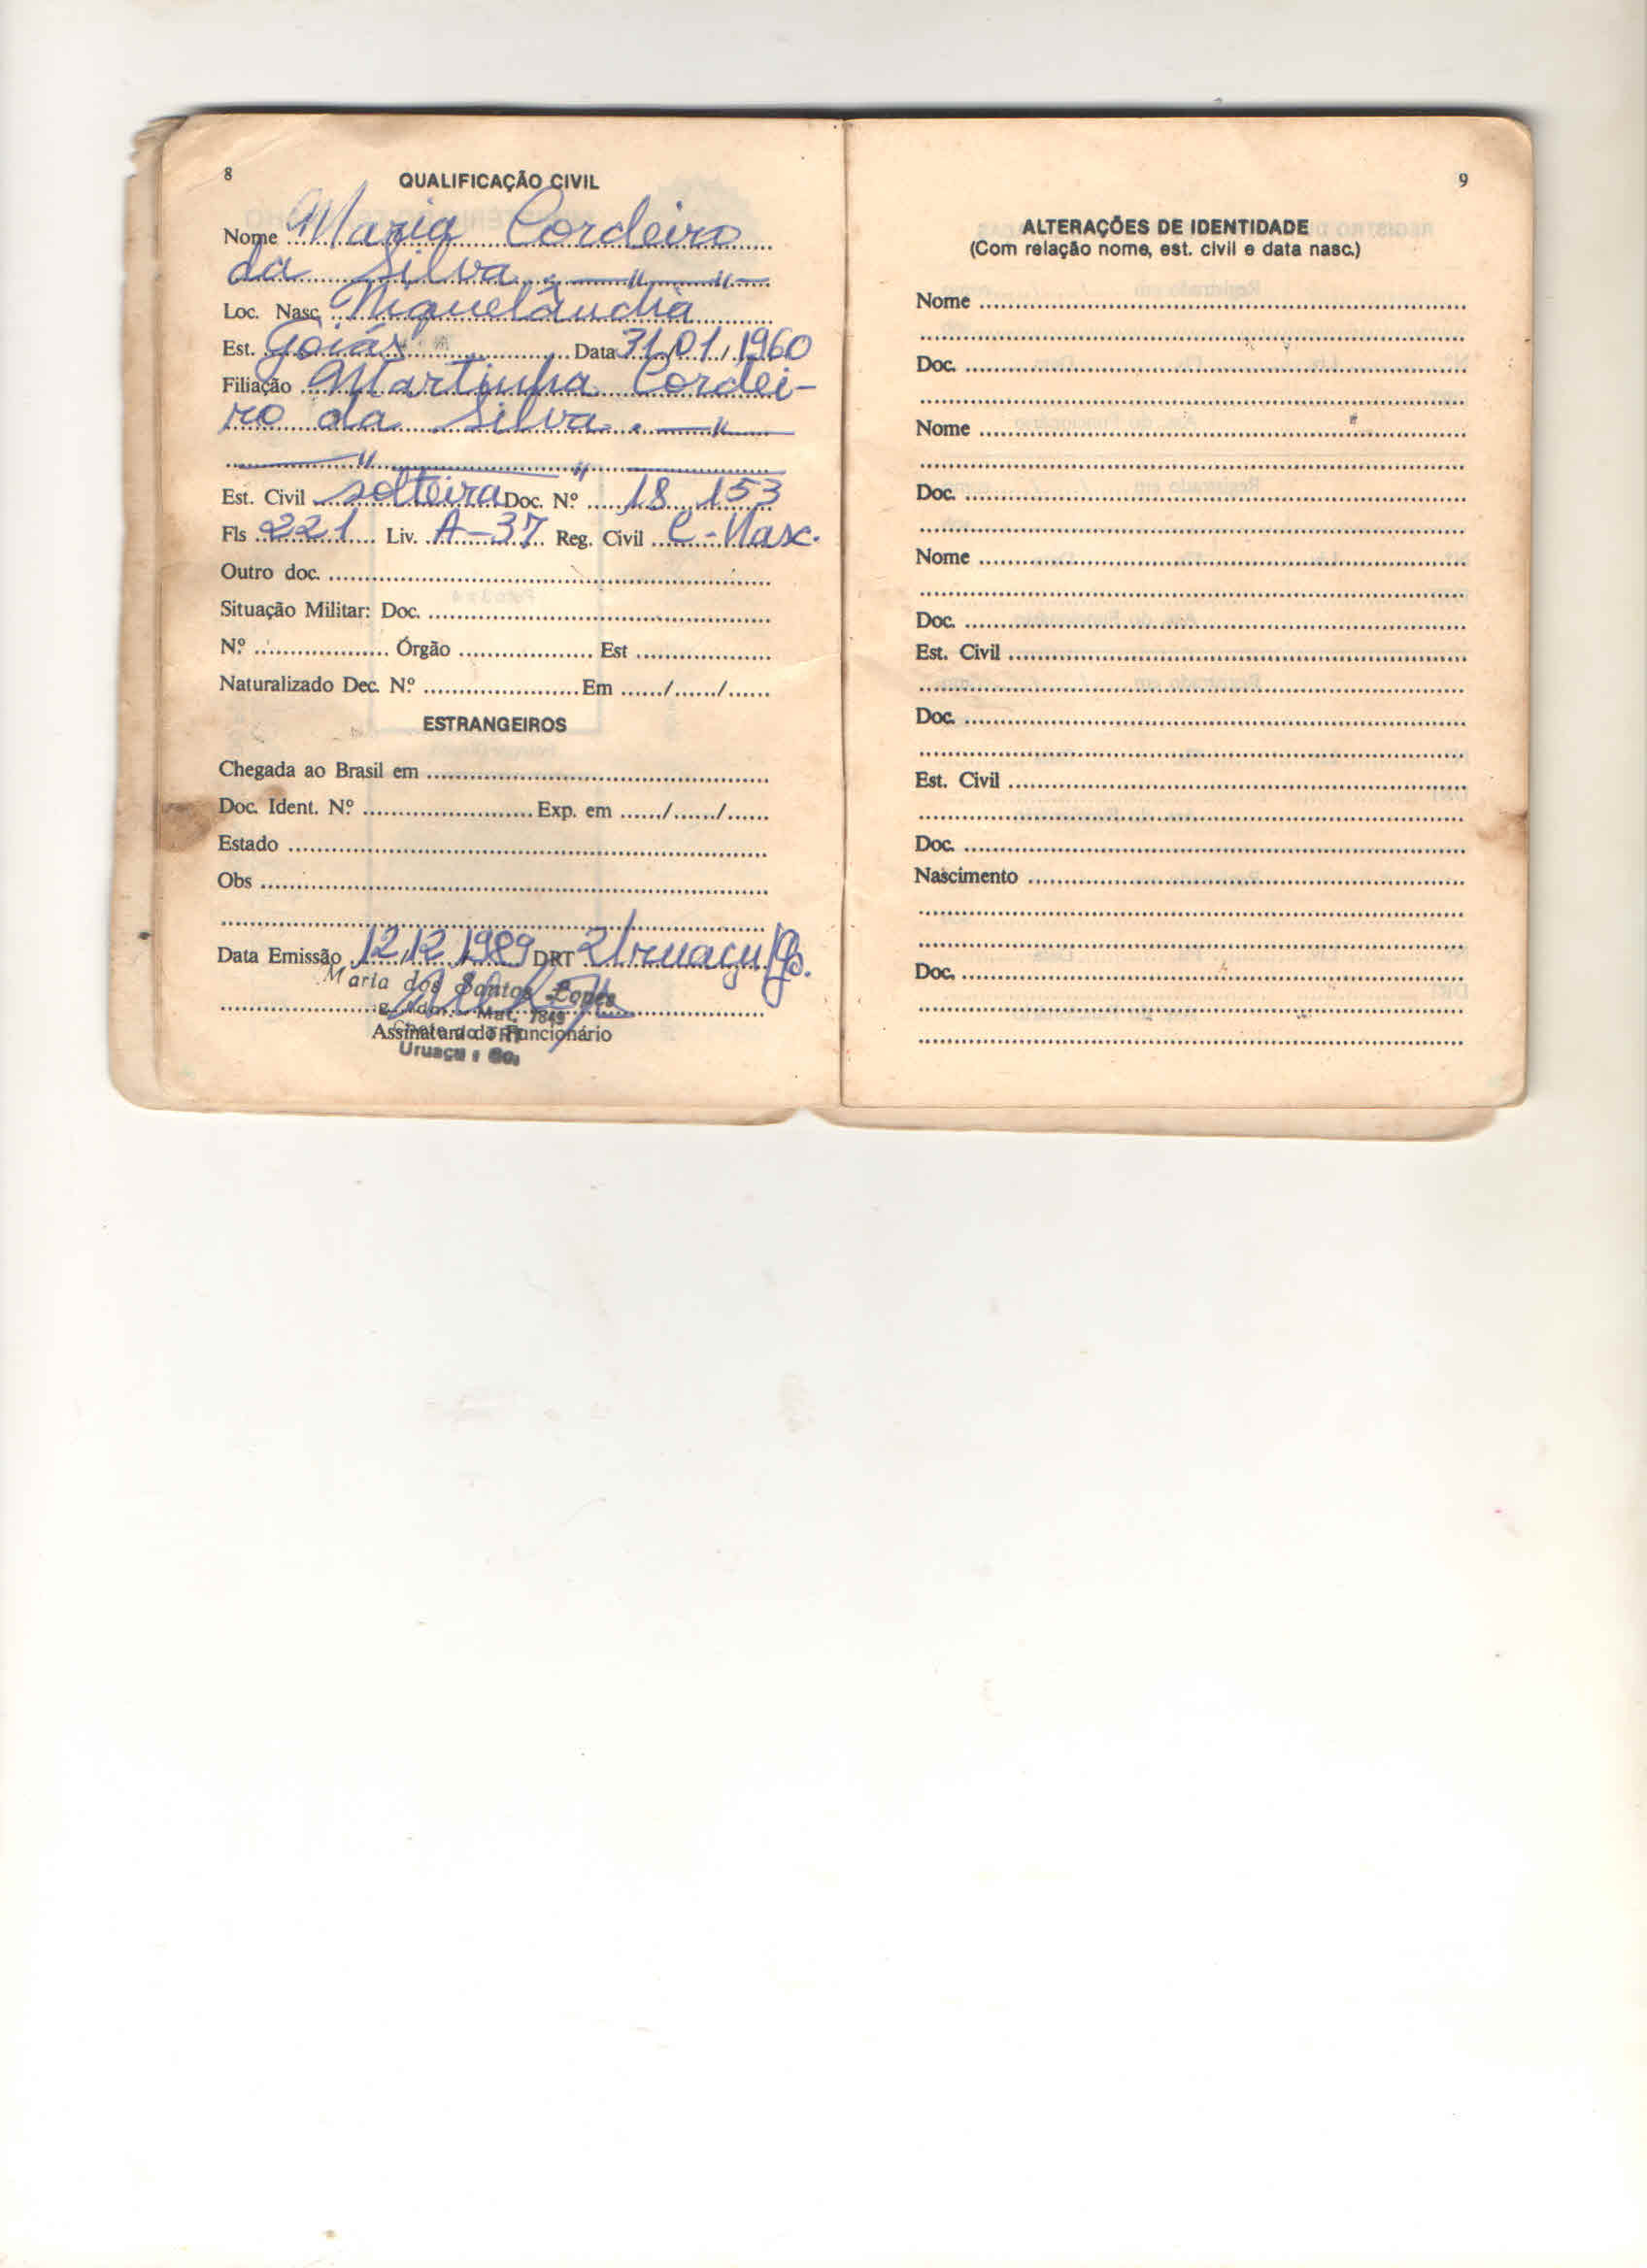 8
QUALIFICAÇÃO CIVIL
Nome Maria Cordeiro
da Silva. — " — " —
Loc. Nasc. Niquelândia
Est. Goiás Data 31/01/1960
Filiação Martinha Cordei-
ro da Silva. — "
— " — " —
Est. Civil solteira Doc. N.º 18 153
Fls 221 Liv. A-37 Reg. Civil C-Nasc.
Outro doc.
Situação Militar: Doc.
N.º Órgão Est
Naturalizado Dec. N.º Em / /
ESTRANGEIROS
Chegada ao Brasil em
Doc. Ident. N.º Exp. em / /
Estado
Obs
Data Emissão 12/12/1989 DRT Uruaçu/Go.
Maria dos Santos Lopes
Mat. 7849
Assinatura do Funcionário
Uruaçu - Go.
9
ALTERAÇÕES DE IDENTIDADE
(Com relação nome, est. civil e data nasc.)
Nome
Doc.
Nome
Doc.
Nome
Doc.
Est. Civil
Doc.
Est. Civil
Doc.
Nascimento
Doc.